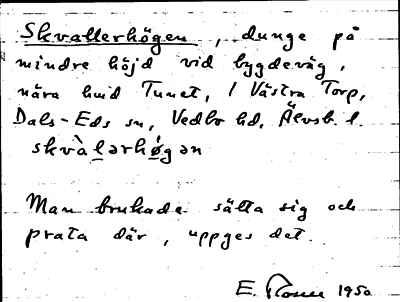 Skvallerhögen, dunge på
mindre höjd vid bygdeväg,
nära hmd Tunet, 1 Västra Torp,
Dals-Eds sn, Vedbo hd, Älvsb. l.
skvàlərhø̀gən
Man brukade sätta sig och
prata där, uppges det.
E. 1950